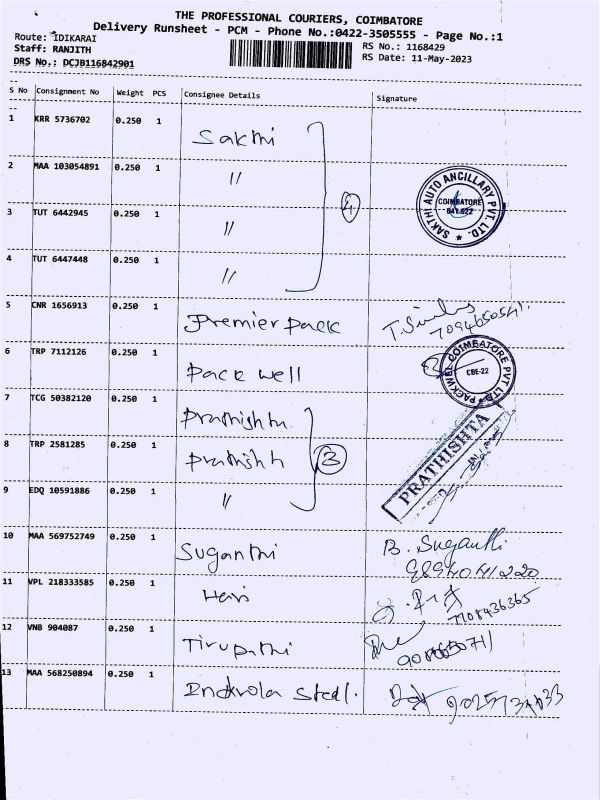 THE PROFESSIONAL COURIERS, COIMBATORE
Delivery Runsheet - PCM - Phone No.:0422-3505555 - Page No.:1
Route: IDIKARAI
RS No.: 1168429
Staff: RANJITH
RS Date: 11-May-2023
DRS No.: DCJB116842901
S No Consignment No Weight PCS Consignee Details Signature
1 KRR 5736702 0.250 1 Sakthi
2 MAA 103054891 0.250 1 "
SAKTHI AUTO ANCILLARY PVT. LTD. COIMBATORE 641 022
3 TUT 6442945 0.250 1 " 4
4 TUT 6447448 0.250 1 "
5 CNR 1656913 0.250 1 Premier pack
6 TRP 7112126 0.250 1 Pack well
PACKWELL COIMBATORE PVT LTD CBE-22
7 TCG 50382120 0.250 1 Prathishta
8 TRP 2581285 0.250 1 Prathishta 3
PRATHISHTA
9 EDQ 10591886 0.250 1 "
10 MAA 569752749 0.250 1 Suganthi B. Suganthi
9894041220
11 VPL 218333585 0.250 1 Hari
7708436365
12 VNB 904087 0.250 1 Tirupathi
13 MAA 568250894 0.250 1 steel.